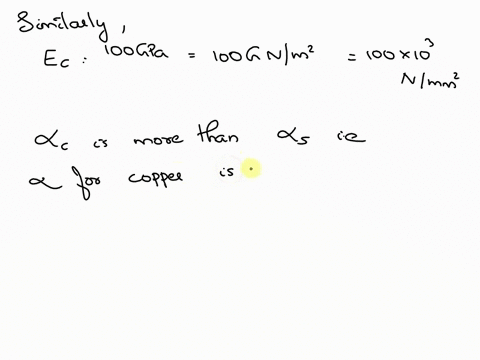 Similarly,
Ec : 100GPa = 100GN/m² = 100×10³
N/mm²
αc is more than αs i.e
α for copper is